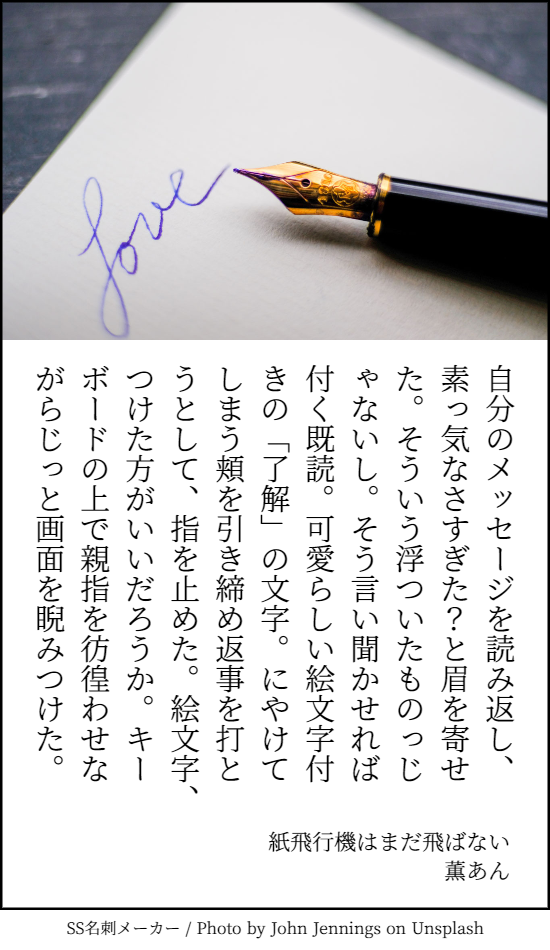 love
自分のメッセージを読み返し、
素っ気なさすぎた？と眉を寄せ
た。そういう浮ついたものっじ
ゃないし。そう言い聞かせれば
付く既読。可愛らしい絵文字付
きの「了解」の文字。にやけて
しまう頬を引き締め返事を打と
うとして、指を止めた。絵文字、
つけた方がいいだろうか。キー
ボードの上で親指を彷徨わせな
がらじっと画面を睨みつけた。
紙飛行機はまだ飛ばない
薫あん
SS名刺メーカー / Photo by John Jennings on Unsplash